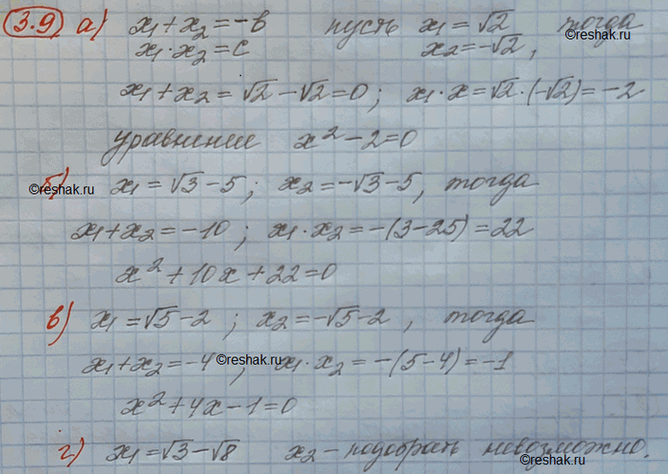 3.9) а) x₁ + x₂ = -в пусть x₁ = √2, тогда
x₁·x₂ = c x₂ = -√2,
x₁ + x₂ = √2 - √2 = 0; x₁·x = √2·(-√2) = -2
уравнение x² - 2 = 0
б) x₁ = √3 - 5; x₂ = -√3 - 5, тогда
©reshak.ru
x₁ + x₂ = -10; x₁·x₂ = -(3 - 25) = 22
x² + 10x + 22 = 0
в) x₁ = √5 - 2; x₂ = -√5 - 2, тогда
x₁ + x₂ = -4; x₁·x₂ = -(5 - 4) = -1
©reshak.ru
x² + 4x - 1 = 0
г) x₁ = √3 - √8 x₂ - подобрать невозможно.
©reshak.ru